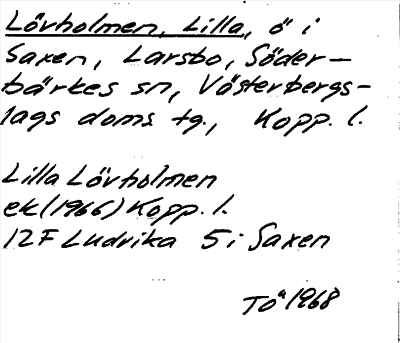 Lövholmen, Lilla, ö i
Saxen, Larsbo, Söder-
bärkes sn, Västerbergs-
lags doms tg., Kopp. l.
Lilla Lövholmen
ek (1966) Kopp. l.
12F Ludvika 5i Saxen
Tö 1968